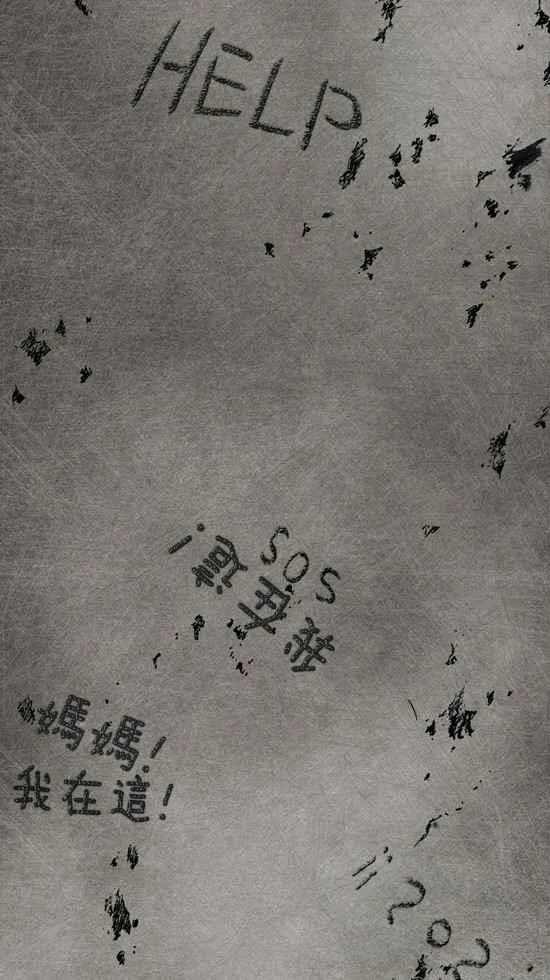 HELP
SOS
我在這!
媽媽!
我在這!